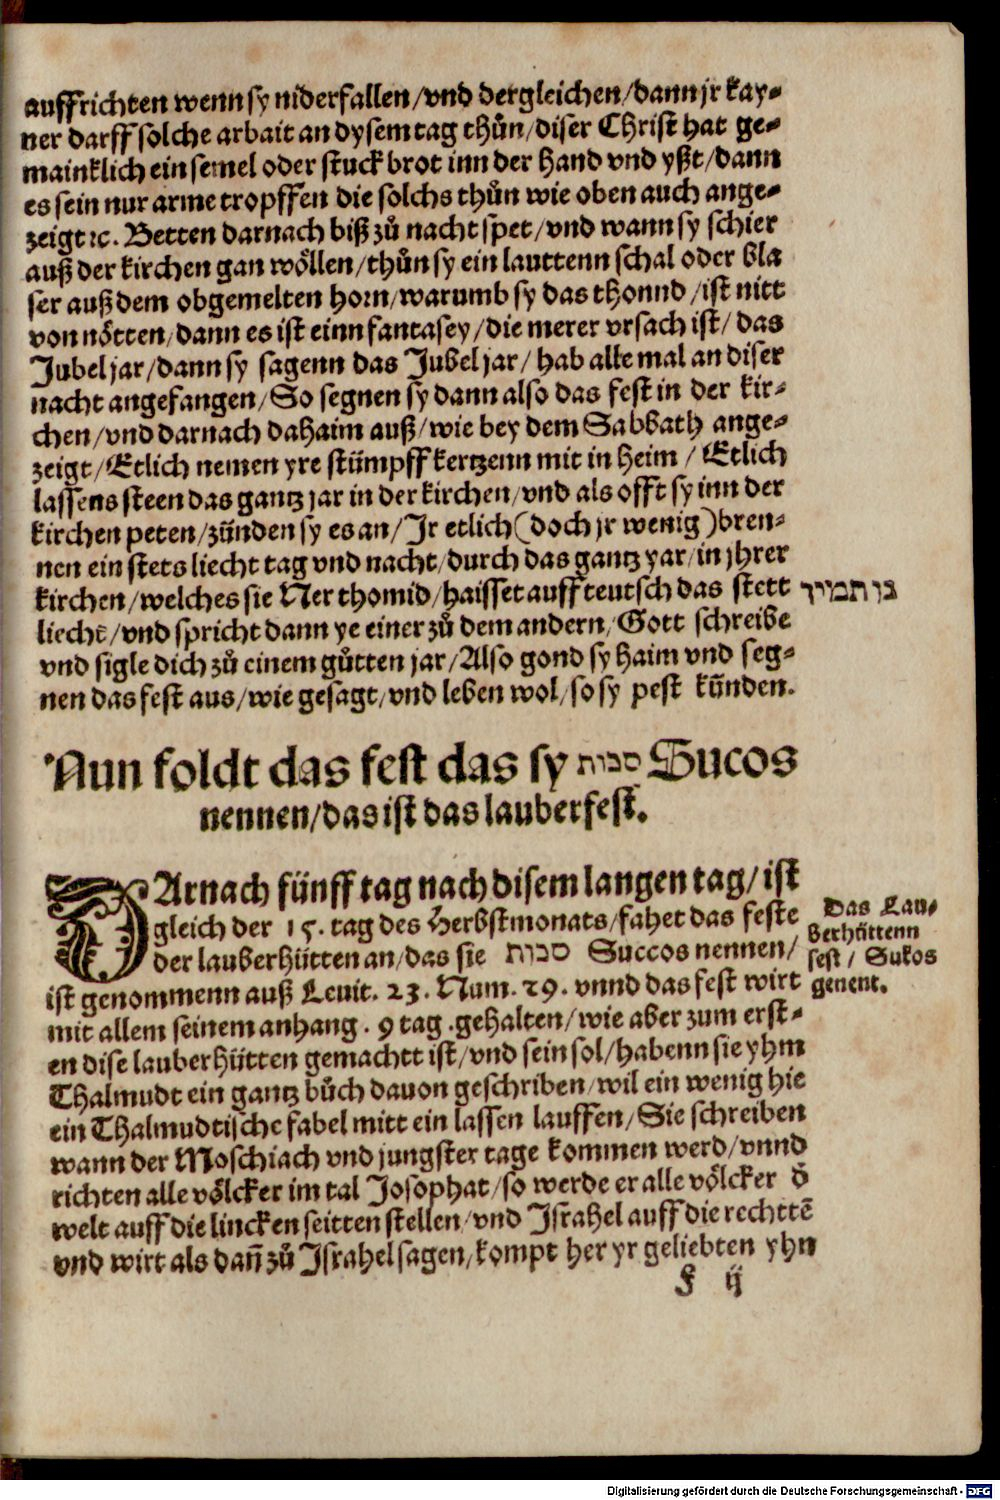 auffrichten wenn sy niderfallen/vnd dergleichen/dann jr kay⸗
ner darff solche arbait an dysem tag thůn/diser Christ hat ge⸗
mainklich ein semel oder stuck brot inn der Hand vnd yßt/dann
es sein nur arme tropffen die solchs thůn wie oben auch ange⸗
zeigt ꝛc. Betten darnach biß zů nacht spet/vnd wann sy schier
auß der kirchen gan wöllen/thůn sy ein lauttenn schal oder bla
ser auß dem obgemelten horn/warumb sy das thonnd/ist nitt
von nötten/dann es ist einn fantasey/die merer vrsach ist/das
Jubel jar/dann sy sagenn das Jubel jar/hab alle mal an diser
nacht angefangen/So segnen sy dann also das fest in der kir⸗
chen/vnd darnach dahaim auß/wie bey dem Sabbath ange⸗
zeigt/Etlich nemen yre stümpff kertzenn mit in heim/Etlich
lassens steen das gantz jar in der kirchen/vnd als offt sy inn der
kirchen peten/zünden sy es an/Jr etlich (doch jr wenig) bren⸗
nen ein stets liecht tag vnd nacht/durch das gantz yar/in jhrer
kirchen/welches sie Ner thomid/haisset auff teutsch das stett
liecht/vnd spricht dann ye einer zů dem andern/Gott schreibe
vnd sigle dich zů einem gůtten jar/Also gond sy haim vnd seg⸗
nen das fest aus/wie gesagt/vnd leben wol/so sy pest künden.
נר תמיד
Nun foldt das fest das sy סכות Sucos
nennen/das ist das lauberfest.
DArnach fünff tag nach disem langen tag/ist
gleich der 15. tag des Herbstmonats/fahet das feste
der lauberhütten an/das sie סכות Succos nennen/
ist genommenn auß Leuit. 23. Num. 29. vnnd das fest wirt
mit allem seinem anhang . 9 tag .gehalten/wie aber zum erst⸗
en dise lauberhütten gemachtt ist/vnd sein sol/habenn sie yhm
Thalmudt ein gantz bůch dauon geschriben/wil ein wenig hie
ein Thalmudtische fabel mitt ein lassen lauffen/Sie schreiben
wann der Moschiach vnd jungster tage kommen werd/vnnd
richten alle völcker im tal Josophat/so werde er alle völcker d̾
welt auff die lincken seitten stellen/vnd Jsrahel auff die rechttē
vnd wirt als dañ zů Jsrahel sagen/kompt her yr geliebten yhn
Das Lau⸗
berhüttenn
fest/ Sukos
genent.
F ij
Digitalisierung gefördert durch die Deutsche Forschungsgemeinschaft - DFG